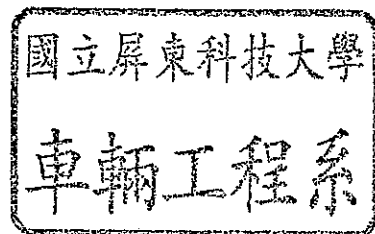 國立屏東科技大學
車輛工程系